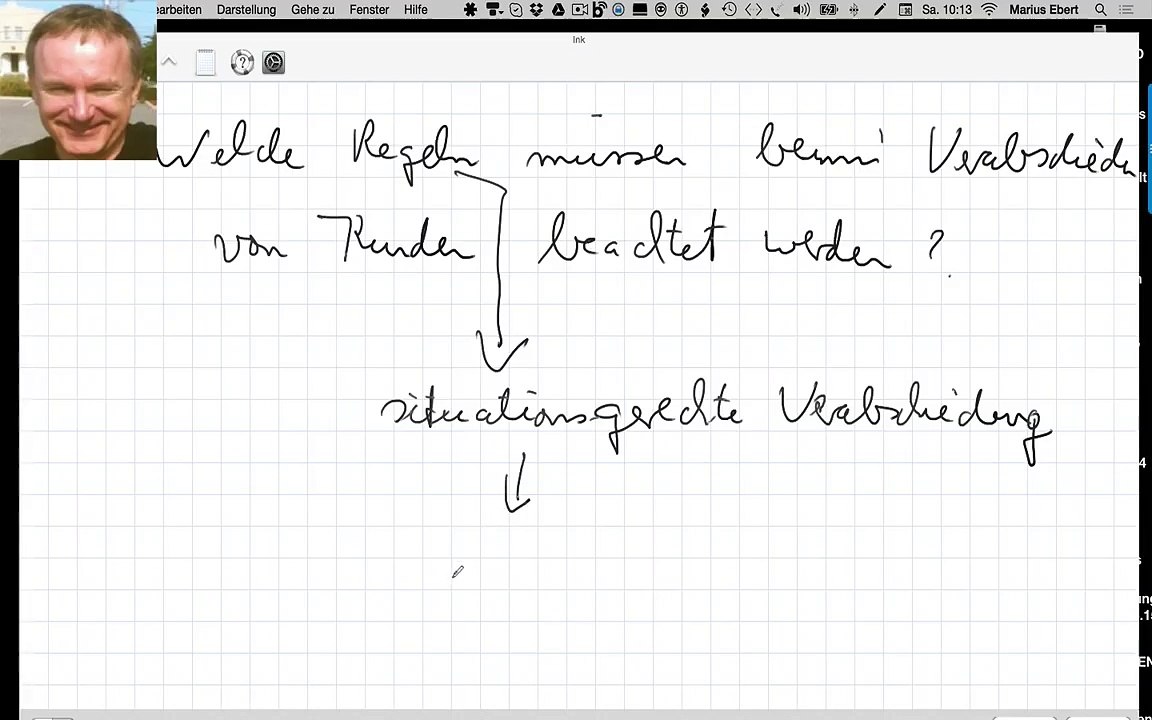 earbeiten Darstellung Gehe zu Fenster Hilfe Sa. 10:13 Marius Ebert
Ink
Welche Regeln müssen beim Verabschieden
von Kunden beachtet werden ?
situationsgerechte Verabschiedung